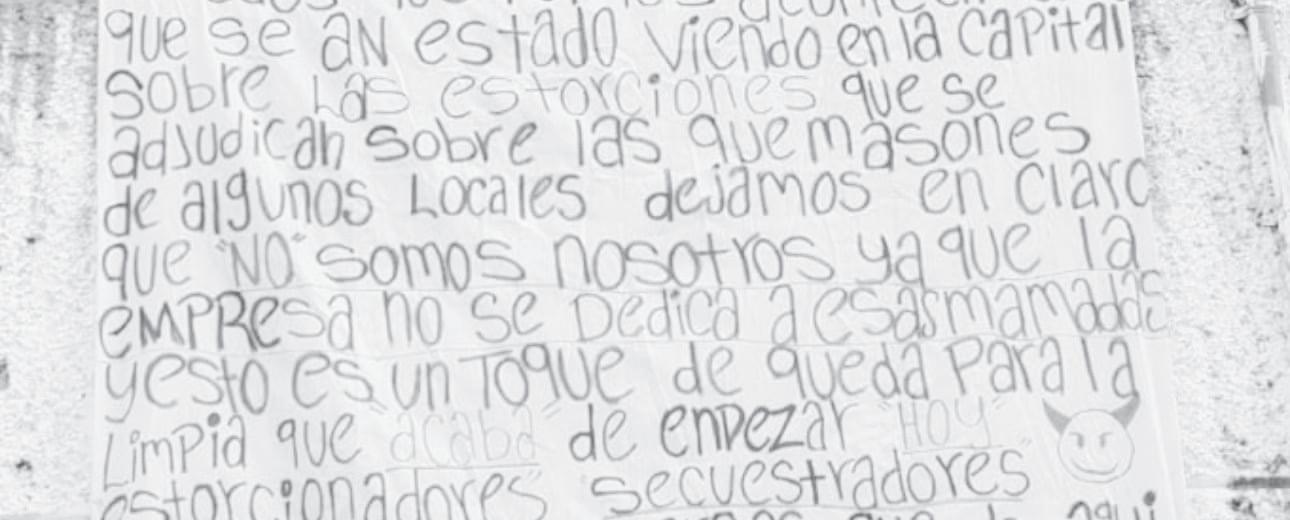 que se aN estado viendo en la capital
sobre Las estorciones que se
adjudican sobre las quemasones
de algunos Locales dejamos en claro
que "NO" somos nosotros ya que la
eMPResa no se Dedica a esas mamadas
y esto es un Toque de queda Para la
Limpia que "acaba" de enpezar "HOY"
estorcionadores" "secuestradores"